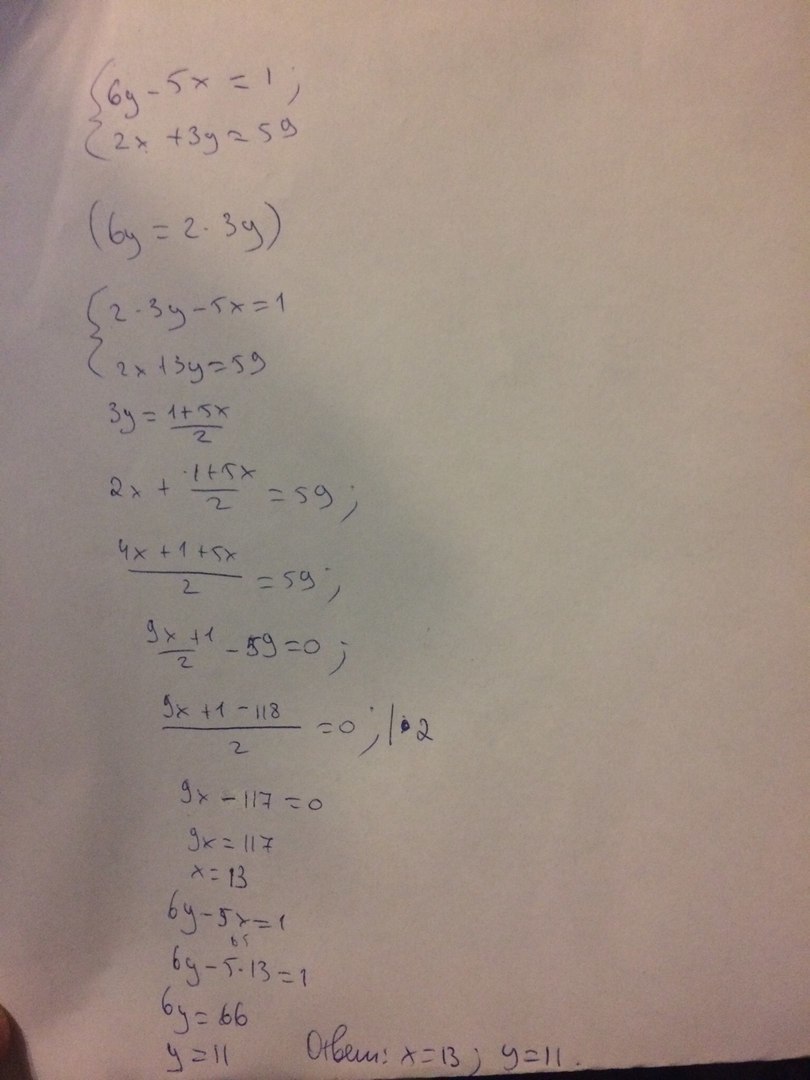 {6y - 5x = 1;
{2x + 3y = 59
(6y = 2 · 3y)
{2 · 3y - 5x = 1
{2x + 3y = 59
3y = (1 + 5x)/2
2x + (1 + 5x)/2 = 59;
(4x + 1 + 5x)/2 = 59;
(9x + 1)/2 - 59 = 0;
(9x + 1 - 118)/2 = 0; | · 2
9x - 117 = 0
9x = 117
x = 13
6y - 5x = 1
65
6y - 5 · 13 = 1
6y = 66
y = 11 Ответ: x = 13; y = 11.